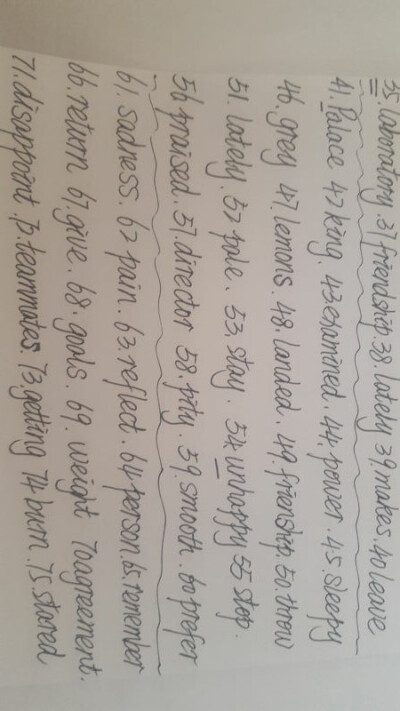 35. laboratory. 37 friendship. 38. lately 39. makes. 40 leave
41. Palace 42 king. 43. examined. 44. power. 45. sleepy
46. grey 47. lemons. 48. landed. 49. frienship 50. throw
51. lately. 52 pole. 53. stay. 54. unhappy 55 stop.
56 praised. 57. director 58. pity. 59. smooth. 60 prefer
61. sadness. 62 pain. 63. reflect. 64 person. 65. remember
66. return 67. give. 68. goals. 69. weight 70 agreement.
71. disappoint. 72. teammates. 73. getting 74 burn. 75. stared